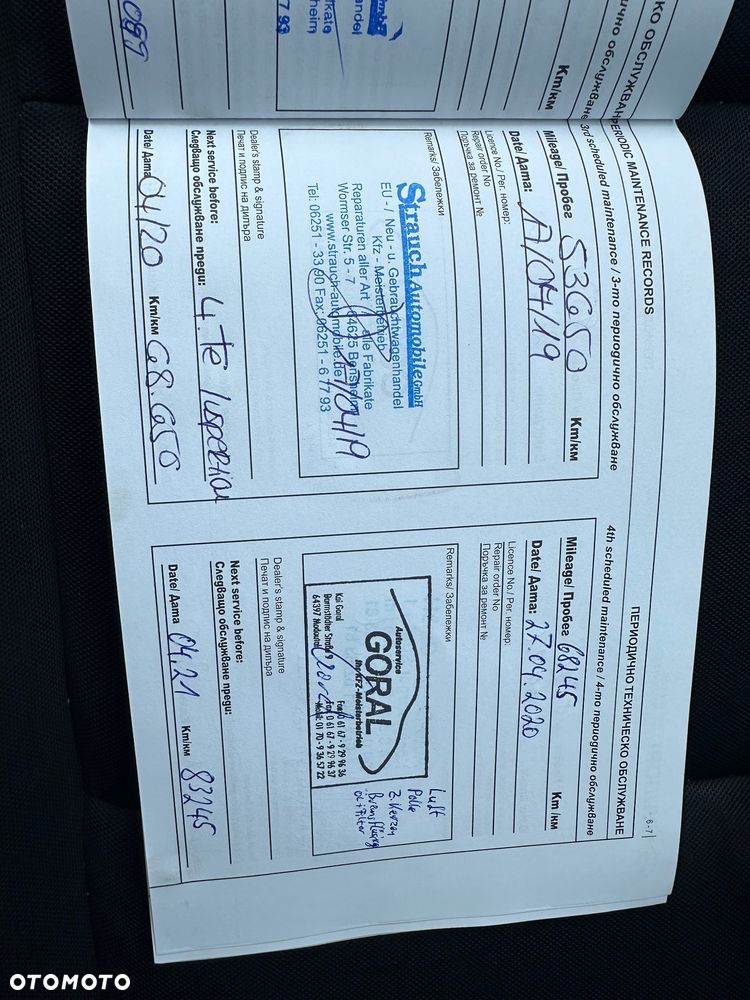 PERIODIC MAINTENANCE RECORDS
3rd scheduled maintenance / 3-то периодично обслужване
Mileage/ Пробег 53650 Km/км
Date/ Дата: 04/19
Licence No./ Рег. номер:
Repair order No
Поръчка за ремонт №
Remarks/ Забележки
Strauch Automobile GmbH
EU - / Neu - u. Gebrauchtwagenhandel
Kfz - Meisterbetrieb
Reparaturen aller Art alle Fabrikate
Wormser Str. 5 - 7 64625 Bensheim
www.strauch-automobile.de
Tel: 06251 - 33 90 Fax: 06251 - 6 77 93
Dealer's stamp & signature
Печат и подпис на дилъра
Next service before: 4. te Inspektion
Следващо обслужване преди:
Date/ Дата 04/20 Km/км 68.650
ПЕРИОДИЧНО ТЕХНИЧЕСКО ОБСЛУЖВАНЕ
6 - 7
4th scheduled maintenance / 4-то периодично обслужване
Mileage/ Пробег 68245 Km/км
Date/ Дата: 27.04.2020
Licence No./ Рег. номер:
Repair order No
Поръчка за ремонт №
Remarks/ Забележки
Luft
Polle
Z. Kerzen
Öl + Filter
Autoservice
GORAL
Ihr KFZ-Meisterbetrieb
Kai Goral
64397 Modautal
Fon 0 61 67 - 9 29 96 36
Fax 0 61 67 - 9 29 96 37
Mobil: 01 70 - 9 36 57 22
Dealer's stamp & signature
Печат и подпис на дилъра
Next service before:
Следващо обслужване преди:
Date/ Дата 04.21 Km/км 83245
Km/км
77 93
OTOMOTO